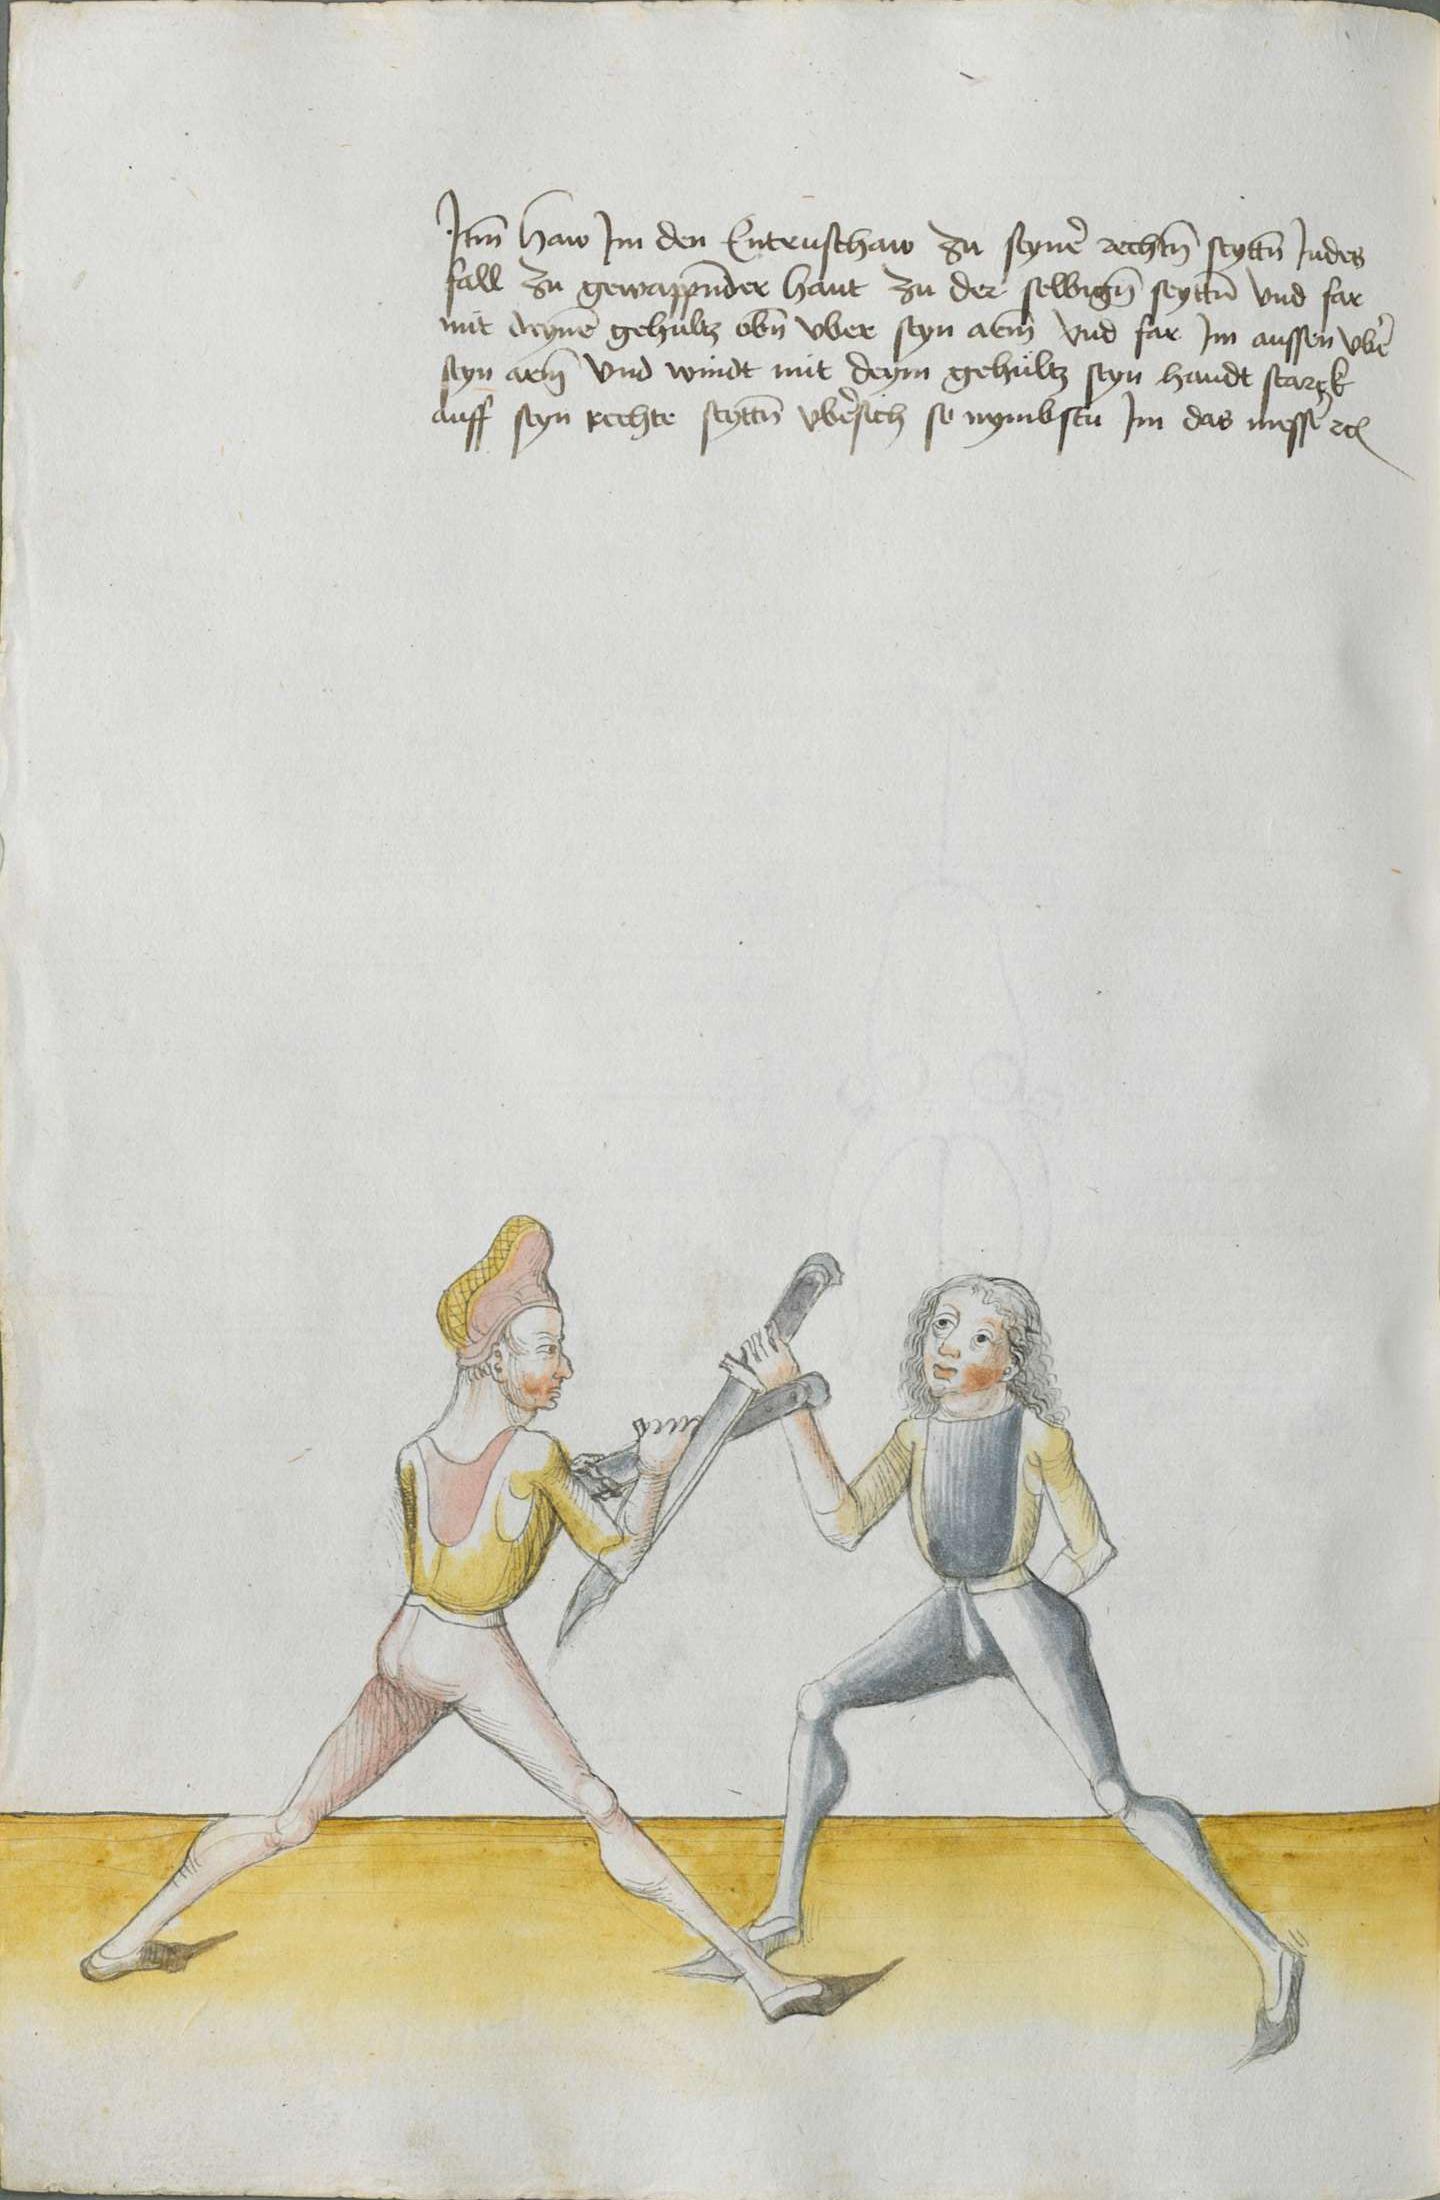 Itm̄ haw Im den Entrusthaw zu seyne᷑ rechtn̄ seyttn̄ Indes
fall zu gewappn̄der hant zu der selbign̄ seyttn̄ vnd far
mit deyne᷑ gehültz obn̄ vber seyn arm̄ vnd far Im aussen vbe᷑
seyn arm̄ vnd windt mit deym gehültz seyn handt starck
auff seyn rechte seyttn̄ vbe᷑sich so nymbstu Im das messe᷑ rc